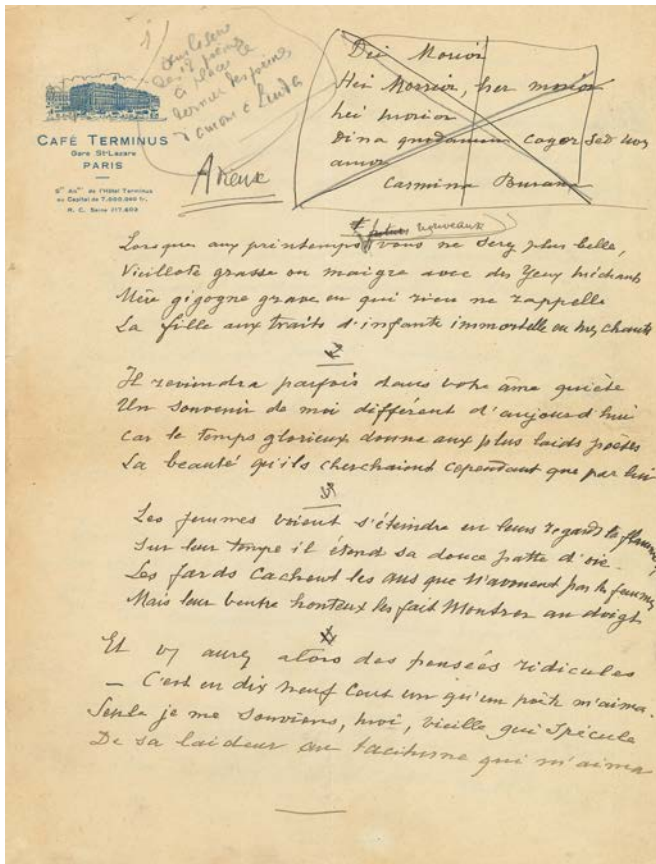 à placer
dernier des poèmes
d'amour à Linda
CAFÉ TERMINUS
Gare St-Lazare
PARIS
Sté Anme de l'Hôtel Terminus
au Capital de
R. C. Seine
Morior
Hei Morior, hei morior
hei morior
cogor sed non
amor
Carmina Burana
Adieux
futurs nouveaux
Lorsque aux printemps vous ne serez plus belle,
Vieillote grasse ou maigre avec des yeux méchants
Mère gigogne grave en qui rien ne rappelle
La fille aux traits d'infante immortelle en mes chants
2
Il reviendra parfois dans votre âme quiète
Un souvenir de moi différent d'aujourd'hui
Car le temps glorieux donne aux plus laids poètes
La beauté qu'ils cherchaient cependant que par lui
3
Les femmes voient s'éteindre en leurs regards la flamme,
Sur leur tempe il étend sa douce patte d'oie
Les fards cachent les ans que n'avouent pas les femmes
Mais leur ventre honteux les fait montrer au doigt
Et vs aurez alors des pensées ridicules
— C'est en dix neuf cent un qu'un poète m'aima.
Seule je me souviens, moi, vieille qui spécule
De sa laideur au taciturne qui m'aima